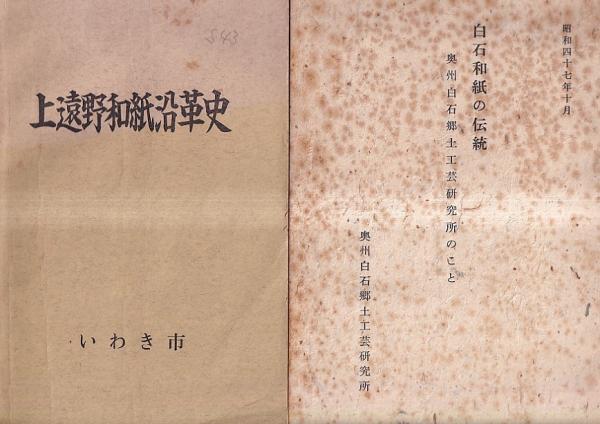 上遠野和紙沿革史
いわき市
昭和四十七年十月
白石和紙の伝統
奥州白石郷土工芸研究所のこと
奥州白石郷土工芸研究所